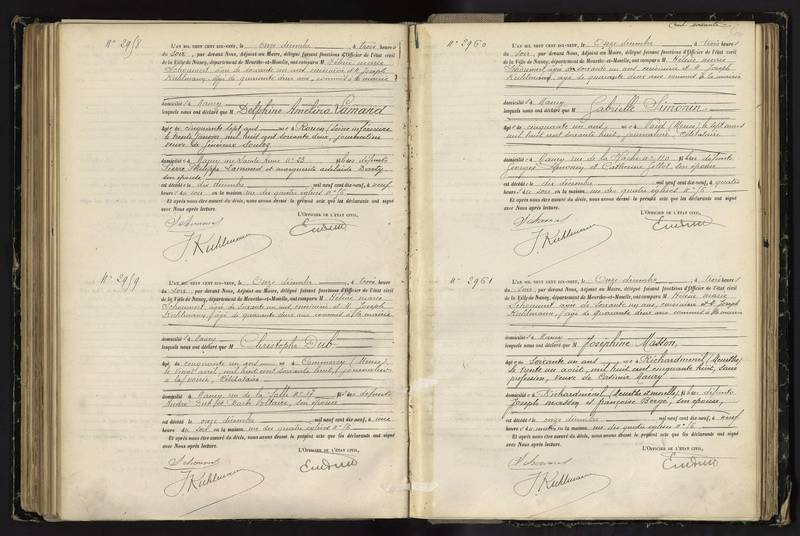 N° 2958
L'AN MIL NEUF CENT DIX-NEUF, le onze décembre, à trois heures
du soir, par devant Nous, Adjoint au Maire, délégué faisant fonctions d'Officier de l'état civil
de la Ville de Nancy, département de Meurthe-et-Moselle, ont comparu M Hélène Marie
agée de soixante un ans, et M. Joseph
Kuhlmann, agé de quarante deux ans, commis à la mairie
domiciliés à Nancy
lesquels nous ont déclaré que M Delphine Lamand
âgée de cinquante sept ans née à Rouen (Seine inférieure
le trente janvier mil huit cent soixante deux, journalière
veuve de
domiciliée à Nancy rue N° 53 fille de défunts
Lammand et marguerite
son épouse
est décédée le dix décembre mil neuf cent dix-neuf, à neuf
heures du soir en la maison rue des quatre églises N° 6
Et après nous être assuré du décès, nous avons dressé le présent acte que les déclarants ont signé
avec Nous après lecture.
L'OFFICIER DE L'ÉTAT CIVIL,
J. Kuhlmann
N° 2959
L'AN MIL NEUF CENT DIX-NEUF, le Onze décembre, à trois heures
du soir, par devant Nous, Adjoint au Maire, délégué faisant fonctions d'Officier de l'état civil
de la Ville de Nancy, département de Meurthe-et-Moselle, ont comparu M Hélène marie
agée de soixante un ans et M. Joseph
Kuhlmann, agé de quarante deux ans commis à la mairie
domiciliés à Nancy
lesquels nous ont déclaré que M Christophe Dub
âgé de cinquante un ans né à Commercy (Meuse)
le vingt avril mil huit cent soixante huit, journalier
célibataire
domicilié à Nancy rue de la Salle N° 17 fils de défunts
Dub et Barbe son épouse
est décédé le onze décembre mil neuf cent dix-neuf, à une
heure du soir en la maison rue des quatre églises N° 6
Et après nous être assuré du décès, nous avons dressé le présent acte que les déclarants ont signé
avec Nous après lecture.
L'OFFICIER DE L'ÉTAT CIVIL,
J. Kuhlmann
N° 2960
L'AN MIL NEUF CENT DIX-NEUF, le Onze décembre, à trois heures
du soir, par devant Nous, Adjoint au Maire, délégué faisant fonctions d'Officier de l'état civil
de la Ville de Nancy, département de Meurthe-et-Moselle, ont comparu M Hélène marie
agée de soixante un ans, et M. Joseph
Kuhlmann, agé de quarante deux ans commis à la mairie
domiciliés à Nancy
lesquels nous ont déclaré que M Gabrielle Simonin
âgée de cinquante un ans née à (Meuse) le sept mars
mil huit cent soixante huit, journalière célibataire
domiciliée à Nancy rue de la N° 110 fille de défunts
Georges Simonin et Catherine son épouse
est décédée le dix décembre mil neuf cent dix-neuf, à quatre
heures du soir en la maison rue des quatre églises N° 6
Et après nous être assuré du décès, nous avons dressé le présent acte que les déclarants ont signé
avec Nous après lecture.
L'OFFICIER DE L'ÉTAT CIVIL,
J. Kuhlmann
N° 2961
L'AN MIL NEUF CENT DIX-NEUF, le Onze décembre, à trois heures
du soir, par devant Nous, Adjoint au Maire, délégué faisant fonctions d'Officier de l'état civil
de la Ville de Nancy, département de Meurthe-et-Moselle, ont comparu M Hélène marie
agée de soixante un ans, et M. Joseph
Kuhlmann, agé de quarante deux ans commis à la mairie
domiciliés à Nancy
lesquels nous ont déclaré que M Joséphine Masson,
âgée de soixante un ans née à Richardménil (Meurthe)
le trente un août, mil huit cent cinquante huit, sans
profession, veuve de Casimir Maury
domiciliée à Richardménil (Meurthe et moselle) fille de défunts
Joseph Masson et françoise son épouse,
est décédée le onze décembre mil neuf cent dix-neuf, à neuf
heures du matin en la maison rue des quatre églises N° 6
Et après nous être assuré du décès, nous avons dressé le présent acte que les déclarants ont signé
avec Nous après lecture.
L'OFFICIER DE L'ÉTAT CIVIL,
J. Kuhlmann